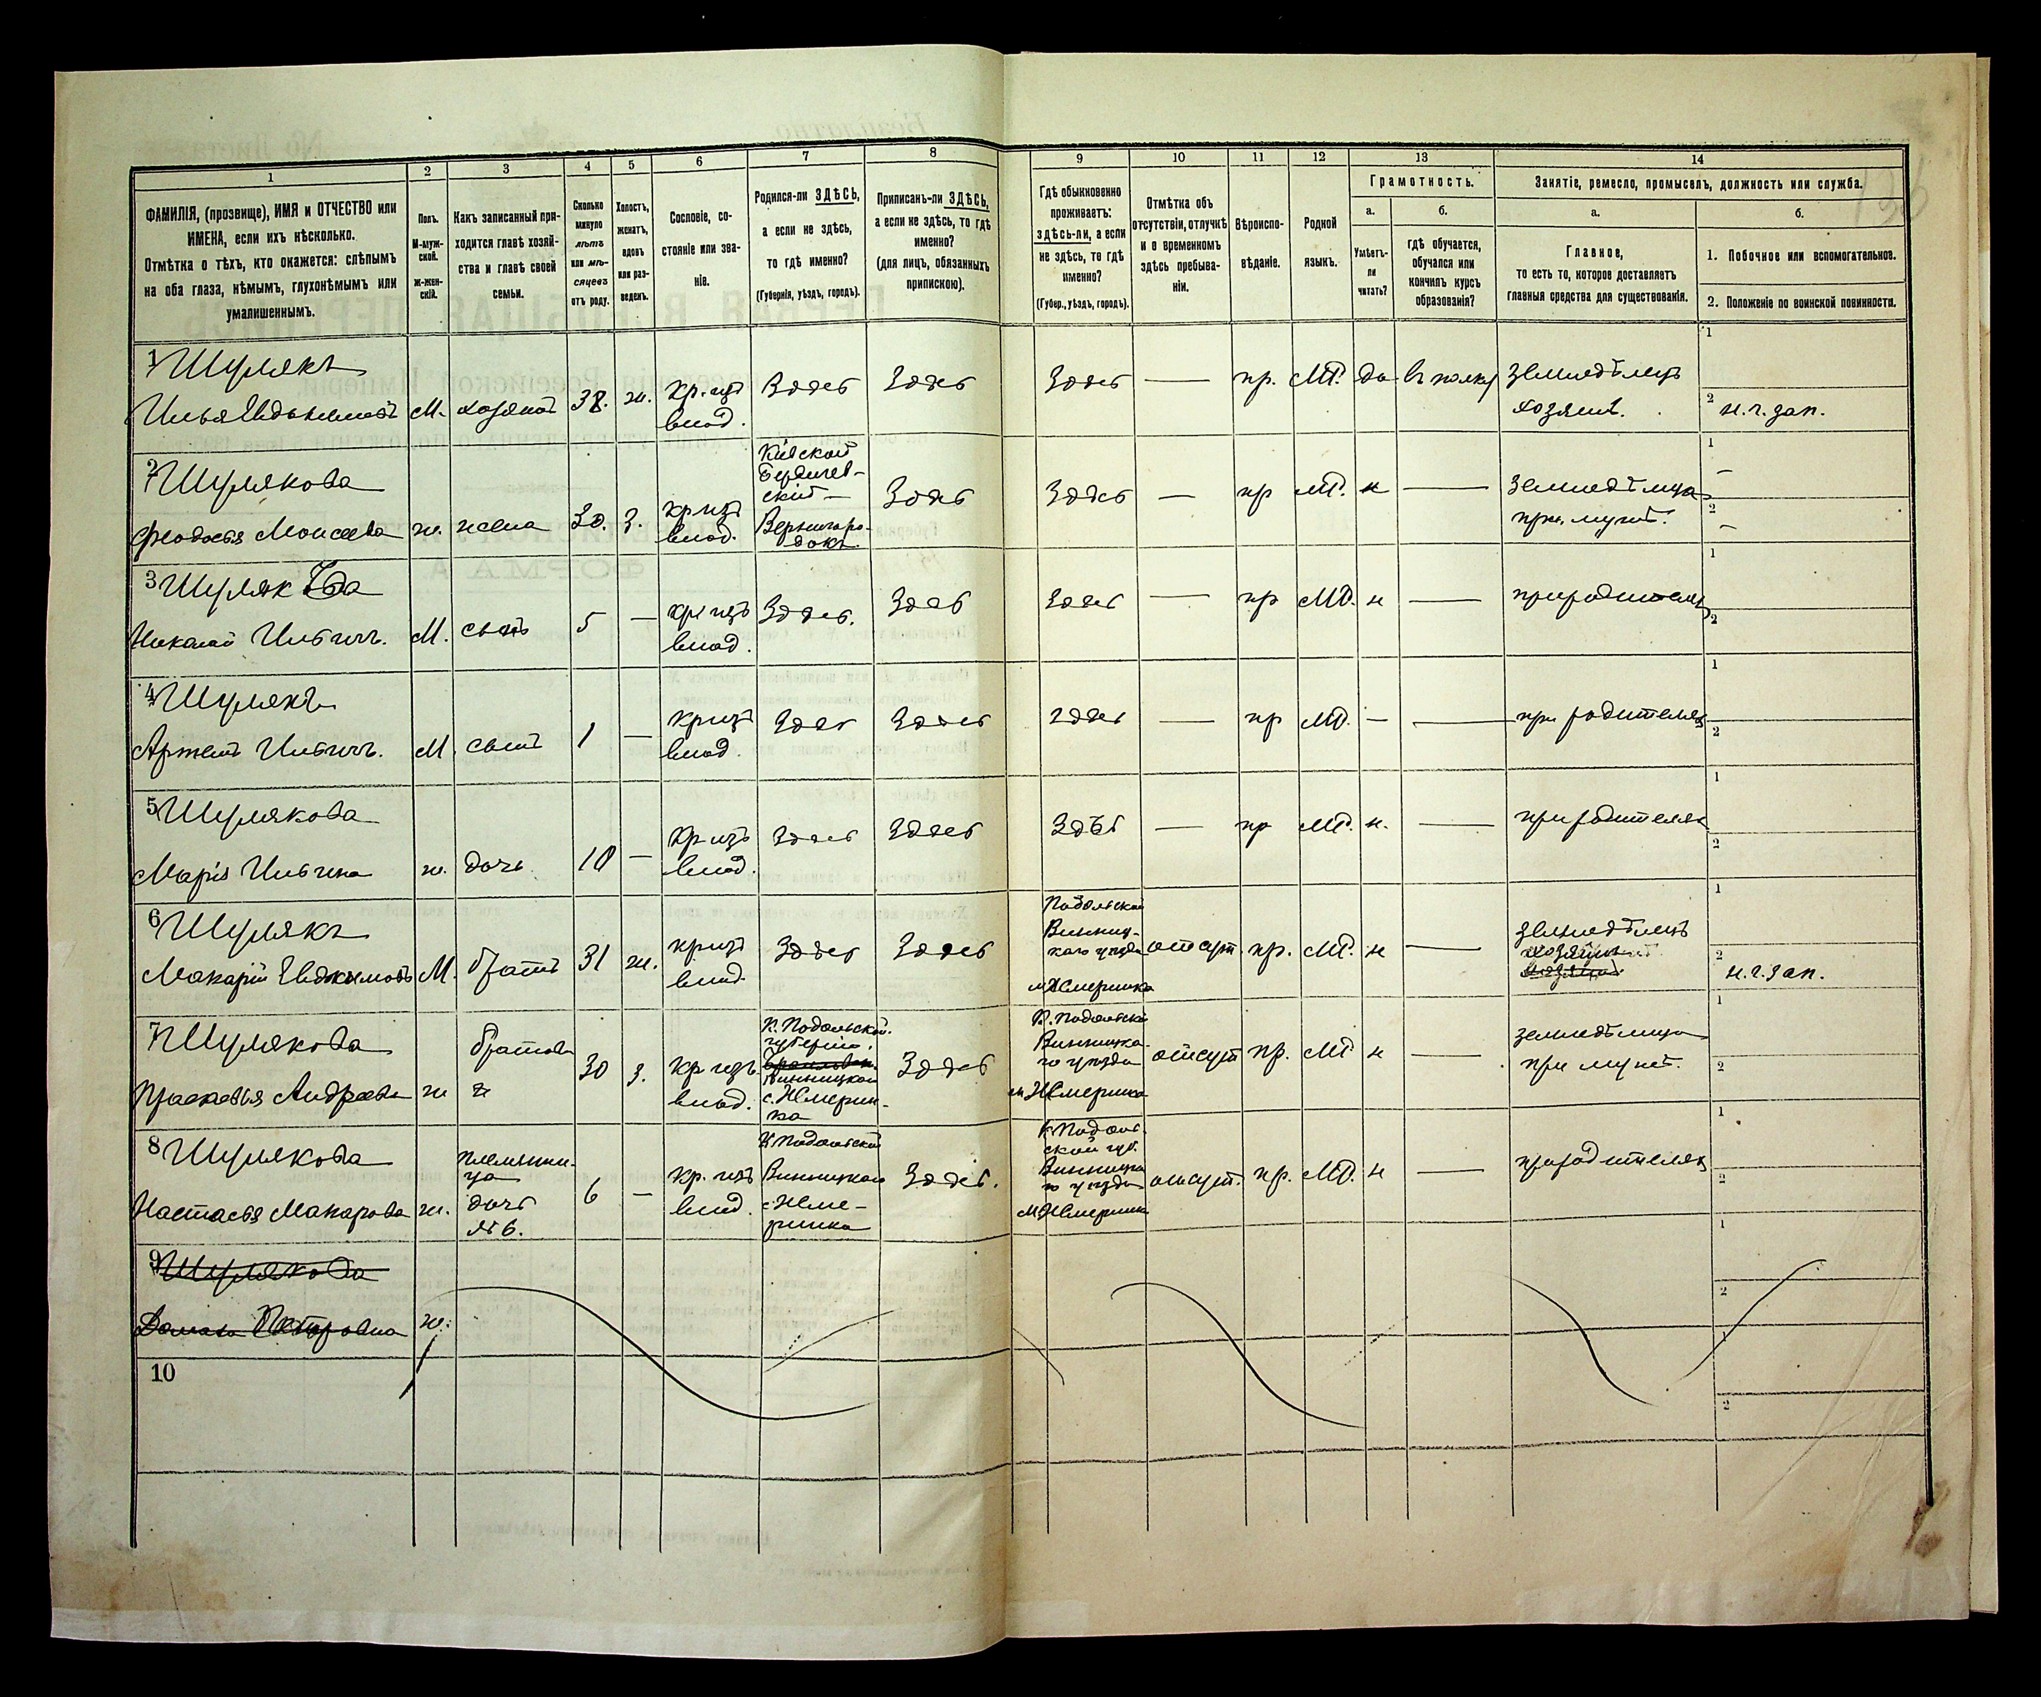 1
2
3
4
5
6
7
8
9
10
11
12
13
14
ФАМИЛІЯ, (прозвище), ИМЯ и ОТЧЕСТВО или
ИМЕНА, если ихъ нѣсколько.
Отмѣтка о тѣхъ, кто окажется: слѣпымъ
на оба глаза, нѣмымъ, глухонѣмымъ или
умалишеннымъ.
Полъ.
М-муж-
ской.
Ж-жен-
скій.
Какъ записанный при-
ходится главѣ хозяй-
ства и главѣ своей
семьи.
Сколько
минуло
лѣтъ
или мѣ-
сяцевъ
отъ роду.
Холостъ,
женатъ,
вдовъ
или раз-
веденъ.
Сословіе, со-
стояніе или зва-
ніе.
Родился-ли ЗДѢСЬ,
а если не здѣсь,
то гдѣ именно?
(Губернія, уѣздъ, городъ).
Приписанъ-ли ЗДѢСЬ,
а если не здѣсь, то гдѣ
именно?
(для лицъ, обязанныхъ
припискою).
Гдѣ обыкновенно
проживаетъ:
здѣсь-ли, а если
не здѣсь, то гдѣ
именно?
(Губер., уѣздъ, городъ).
Отмѣтка объ
отсутствіи, отлучкѣ
и о временномъ
здѣсь пребыва-
ніи.
Вѣроиспо-
вѣданіе.
Родной
языкъ.
Грамотность.
а.
Умѣетъ-
ли
читать?
б.
гдѣ обучается,
обучался или
кончилъ курсъ
образованія?
Занятіе, ремесло, промыселъ, должность или служба.
а.
Главное,
то есть то, которое доставляетъ
главныя средства для существованія.
б.
1. Побочное или вспомогательное.
2. Положеніе по воинской повинности.
1 Шулякъ
Илья Евдокимовъ М. хозяинъ 38. ж. кр. изъ
влад. Здѣсь Здѣсь Здѣсь — пр. МР. да въ полку земледѣлецъ
хозяинъ.
1
2 н.ч. зап.
2 Шулякова
Феодосья Моисеева ж. жена 30. з. кр изъ
влад.
Кіевской
Бердичев-
скій —
Вернигоро-
докъ
Здѣсь Здѣсь — пр МР. н — земледѣлица
при мужѣ.
1 —
2 —
3 Шуляк
Николай Ильичъ. М. сынъ 5 — кр изъ
влад. Здѣсь. Здѣсь Здѣсь — пр МР. н — при родителяхъ
1
2
4 Шулякъ
Артемъ Ильичъ. М. сынъ 1 — кр изъ
влад. Здѣсь Здѣсь здѣсь — пр МР. — — при родителяхъ
1
2
5 Шулякова
Марія Ильина ж. дочь 10 — кр изъ
влад. Здѣсь Здѣсь Здѣсь — пр МР. н. — при родителяхъ
1
2
6 Шулякъ
Макарій Евдокимовъ М. братъ 31 ж. кр изъ
влад. Здѣсь Здѣсь
Подольской
Винниц-
каго уѣзда
м. Жмеринка
отсут. пр. МР. н — земледѣлецъ
хозяинъ
1
2 н.ч. зап.
7 Шулякова
Прасковья Андреева ж
братова
ж
30 з. кр изъ
влад.
К. Подольской
губерніи,
Винницкой
с. Жмерин-
ка
Здѣсь
К. Подольской
Винницка-
го уѣзда
м. Жмеринка
отсут пр. МР н — земледѣлица
при мужѣ.
1
2
8 Шулякова
Настасья Макарова ж.
племянни-
ца
дочь
№ 6.
6 — кр. изъ
влад.
К Подольской
Винницкаго
с. Жме-
ринка
Здѣсь.
К Подоль-
ской губ.
Винницка
го уѣзда
м. Жмеринка
отсут. пр. МР. н — при родителяхъ
1
2
9 Шулякова
Домаха Петровна ж.
1
2
10
1
2